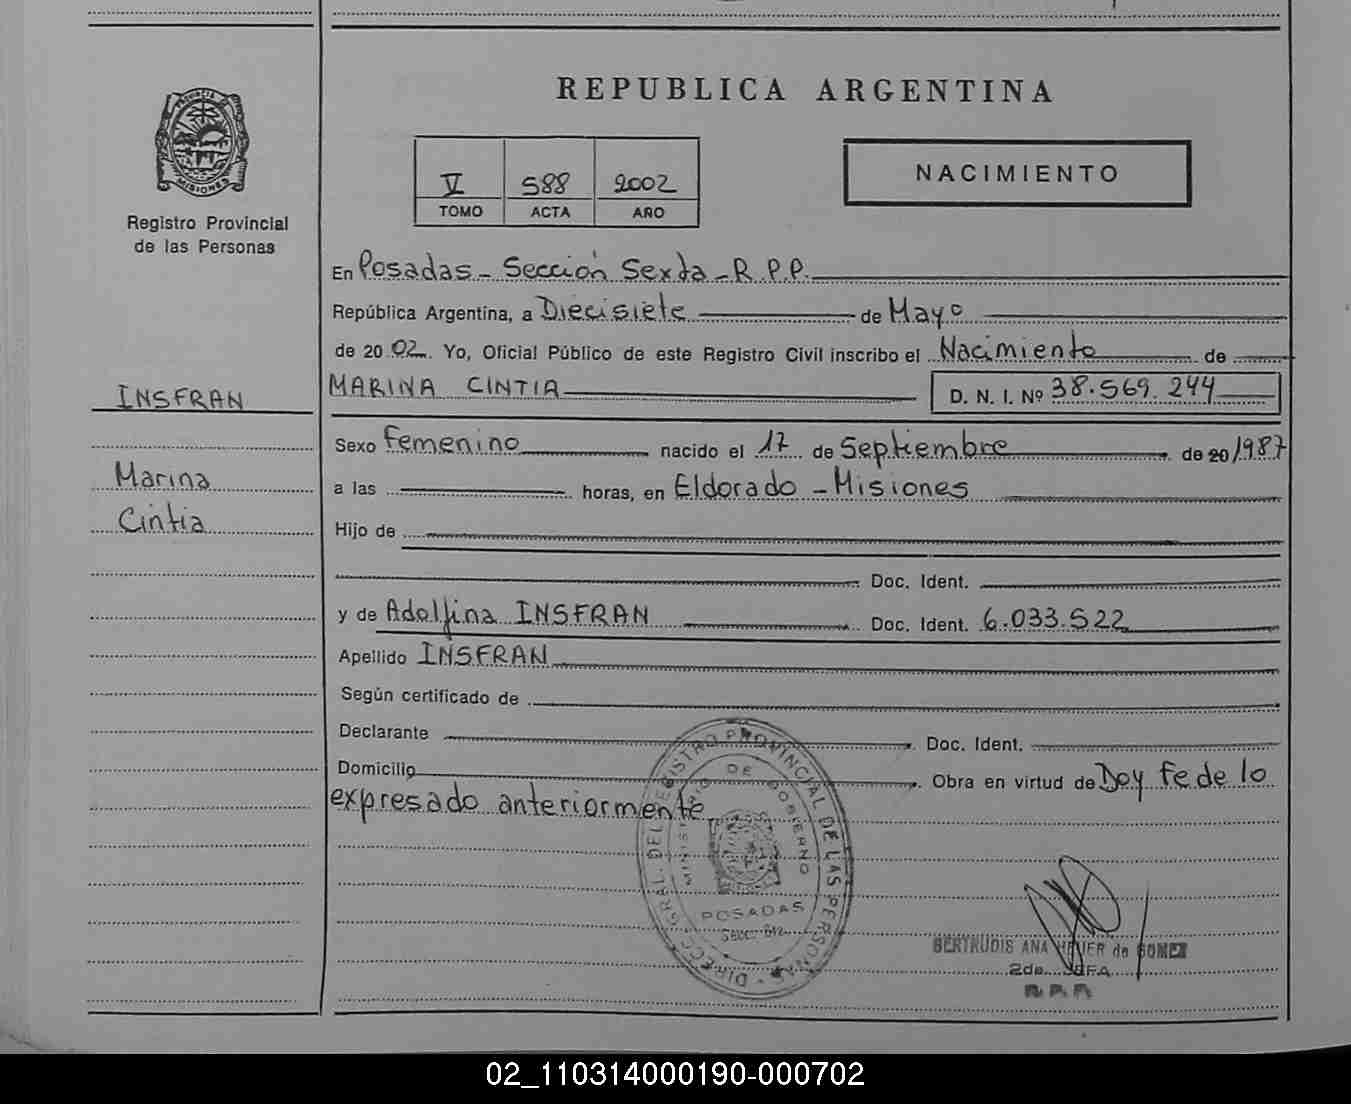 REPUBLICA ARGENTINA
PROVINCIA DE
MISIONES
Registro Provincial
de las Personas
V 588 2002
TOMO ACTA AÑO
NACIMIENTO
En Posadas - Sección Sexta - R.P.P.
República Argentina, a Diecisiete de Mayo
de 2002. Yo, Oficial Público de este Registro Civil inscribo el Nacimiento de
MARINA CINTIA D. N. I. Nº 38.569.244
INSFRAN
Marina
Cintia
Sexo Femenino nacido el 17 de Septiembre de 20/1987
a las horas, en Eldorado - Misiones
Hijo de
Doc. Ident.
y de Adolfina INSFRAN Doc. Ident. 6.033.522
Apellido INSFRAN
Según certificado de
Declarante Doc. Ident.
Domicilio Obra en virtud de Doy fe de lo
expresado anteriormente
DIRECC. GRAL. DEL REGISTRO PROVINCIAL DE LAS PERSONAS
MINISTERIO DE GOBIERNO
POSADAS
GERTRUDIS ANA de GOMEZ
2da. JEFA
R.P.P.
02_110314000190-000702